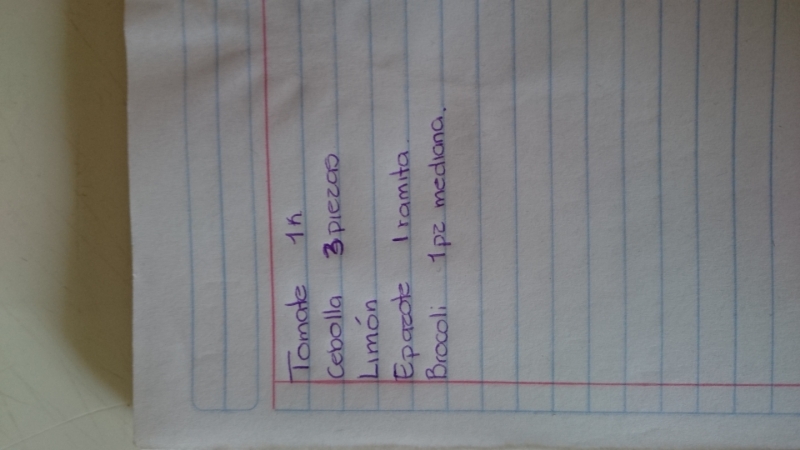 Tomate 1K
Cebolla 3 piezas
Limón
Epazote 1 ramita.
Brocoli 1 pz mediana.